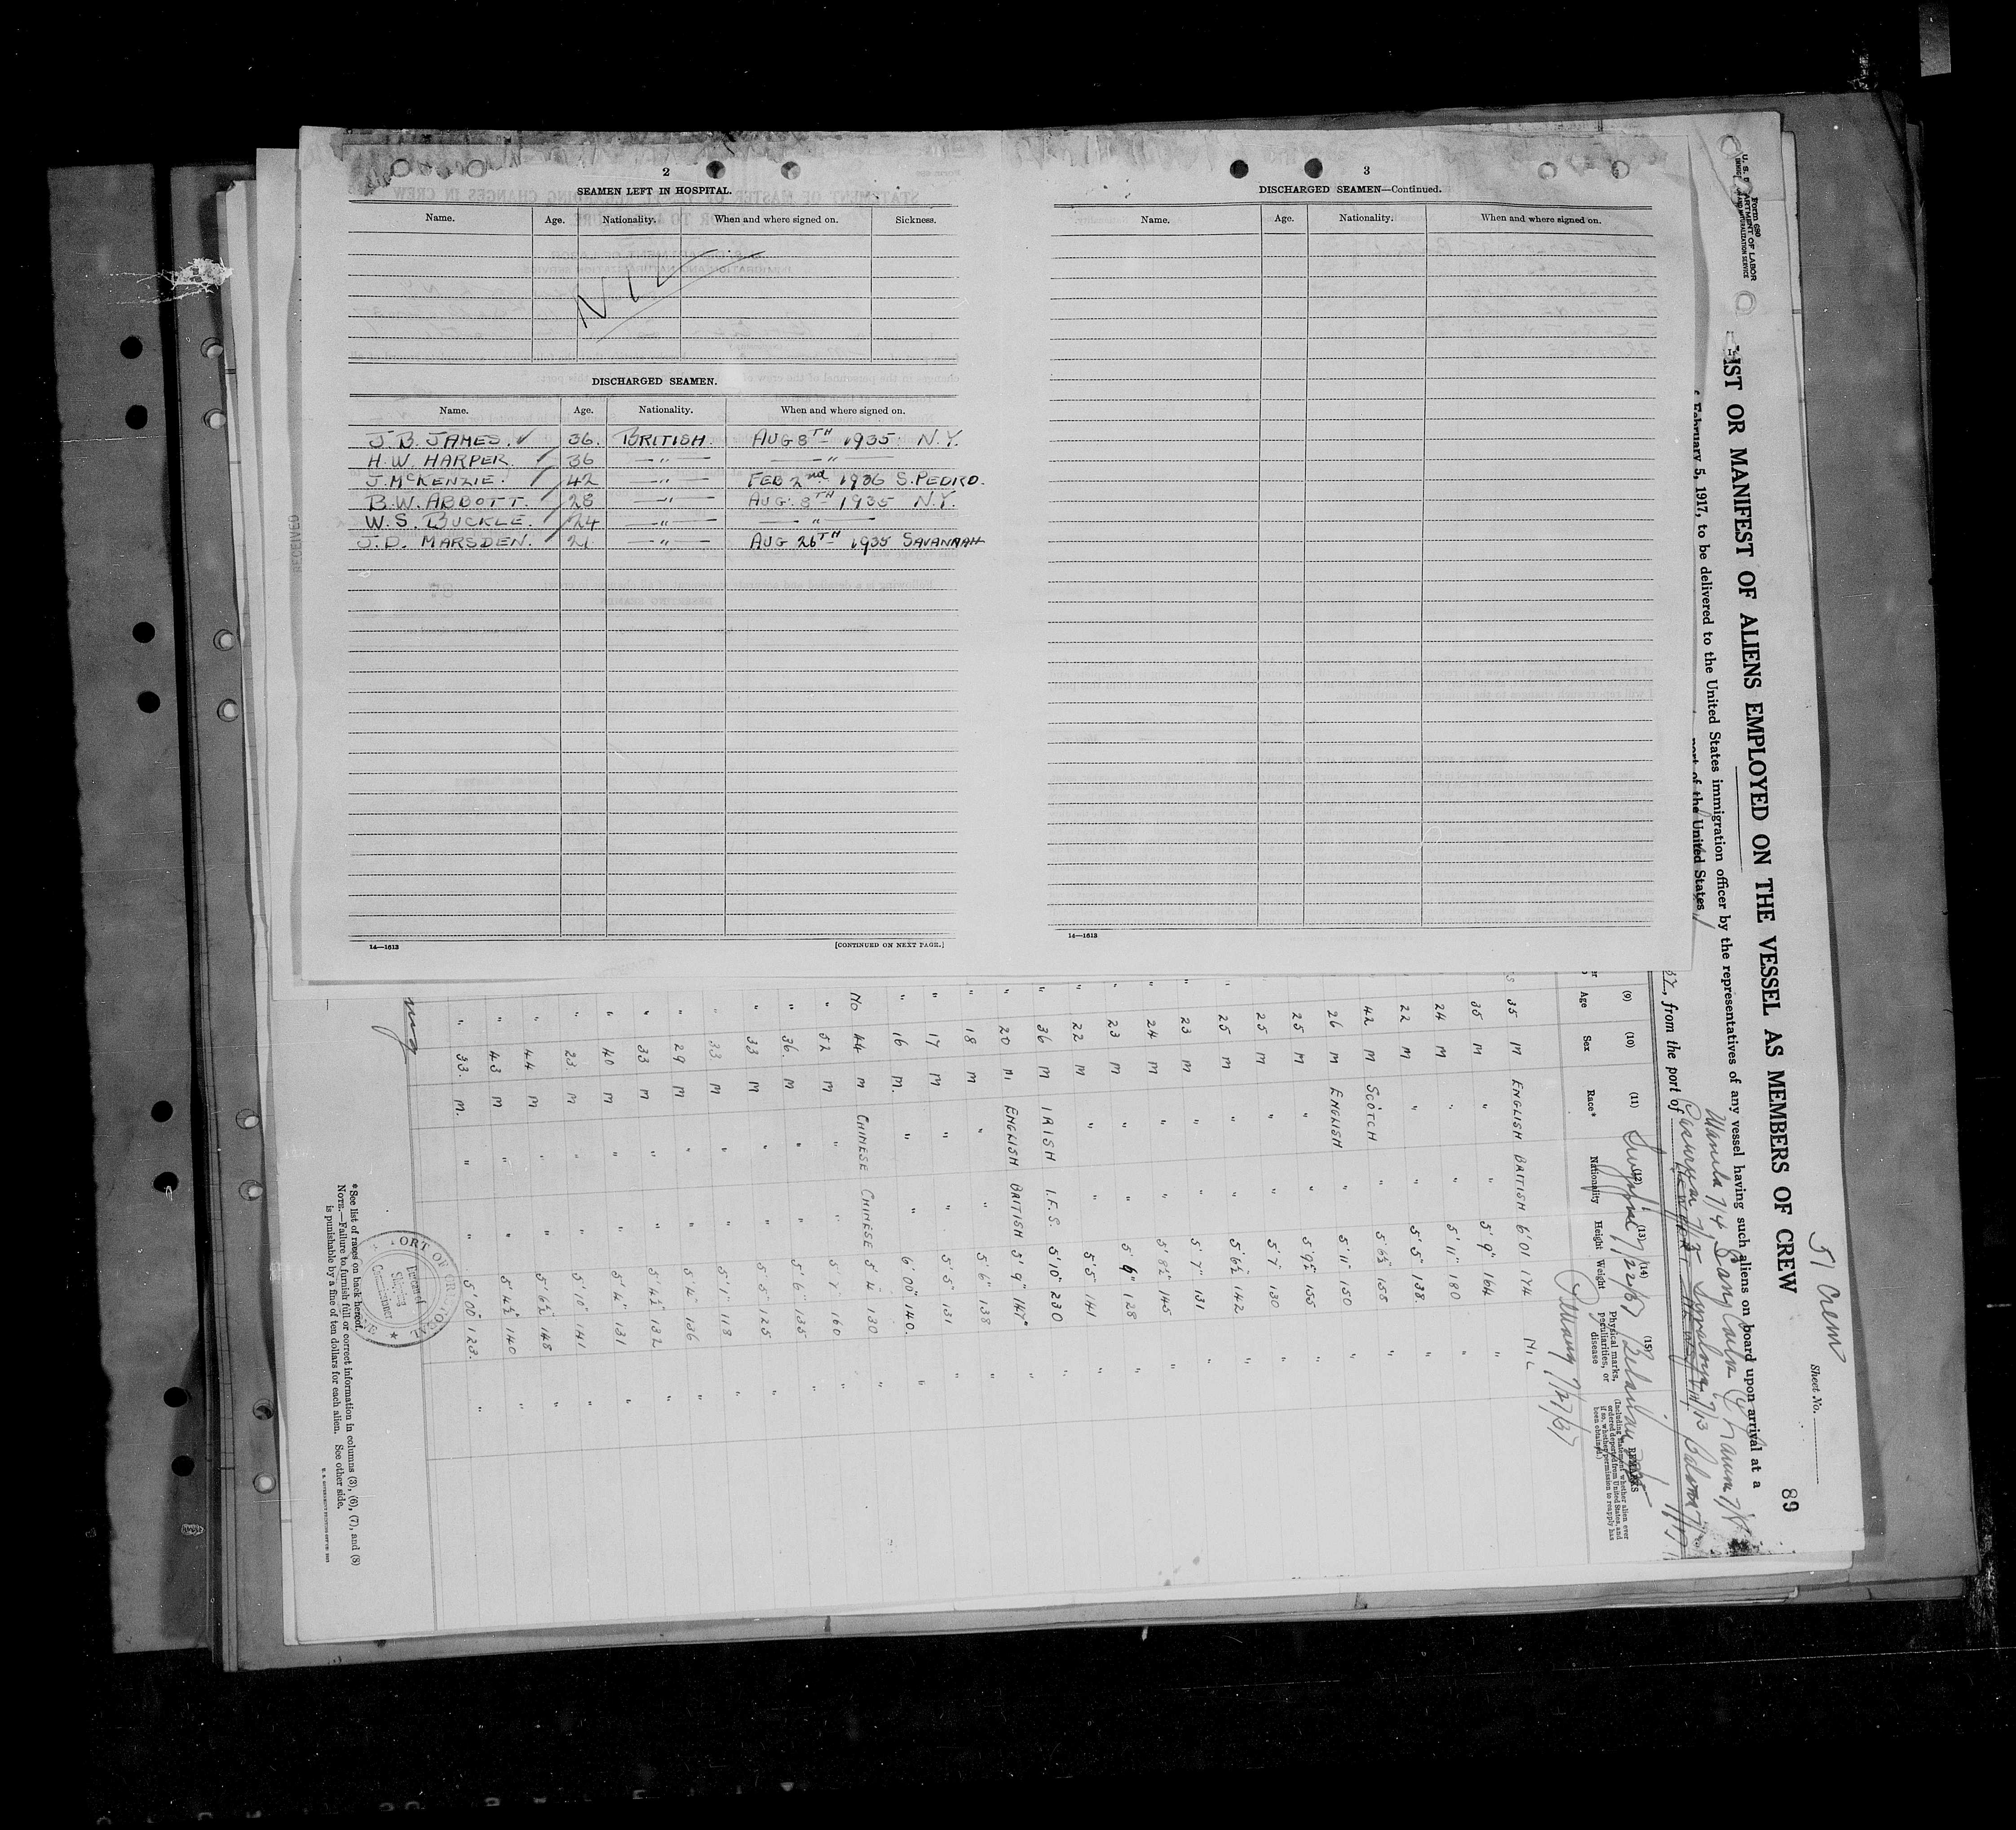 2
SEAMEN LEFT IN HOSPITAL.
Name. Age. Nationality. When and where signed on. Sickness.
NIL
DISCHARGED SEAMEN.
Name. Age. Nationality. When and where signed on.
J.B. JAMES. ✓ 36. BRITISH. AUG 8TH 1935. N.Y.
H.W. HARPER. 36 —"— —"—
J. McKENZIE. 42 —"— FEB 2nd 1936 S. PEDRO.
B.W. ABBOTT. 28 —"— AUG. 8TH 1935 N.Y.
W.S. BUCKLE. 24 —"— —"—
J.D. MARSDEN. 21 —"— AUG 26TH 1935 SAVANNAH
14—1613
[CONTINUED ON NEXT PAGE.]
3
DISCHARGED SEAMEN—Continued.
Name. Age. Nationality. When and where signed on.
14—1613
Form 680
U. S. DEPARTMENT OF LABOR
IMMIGRATION AND NATURALIZATION SERVICE
51 Crew
Sheet No.
89
LIST OR MANIFEST OF ALIENS EMPLOYED ON THE VESSEL AS MEMBERS OF CREW
February 5, 1917, to be delivered to the United States immigration officer by the representatives of any vessel having such aliens on board upon arrival at a
port of the United States
, from the port of
(9) (10) (11) (12) (13) (14) (15)
Age Sex Race* Nationality Height Weight Physical marks, peculiarities, or disease
REMARKS
(Including statement whether alien ever ordered deported from United States, and if so, whether permission to reapply has been obtained.)
35 M ENGLISH BRITISH 6'01 174 NIL
35 M " " 5'9" 164 "
24 M " " 5'11" 180 "
22 M " " 5'5" 138. "
42 M SCOTCH " 5'6½ 155 "
26 M ENGLISH " 5'11" 150 "
25 M " " 5'9½ 155 "
25 M " " 5'7" 130 "
25 M " " 5'6½ 142 "
23 M " " 5'7" 131 "
24 M " " 5'8½ 145 "
23 M " " 5'9" 128 "
22 M " " 5'5" 141 "
36 M IRISH I.F.S. 5'10" 230 "
20 M ENGLISH BRITISH 5'9" 147 "
18 M " " 5'6" 138 "
17 M " " 5'5" 131 "
16 M. " " 6'00" 140. "
No 44 M CHINESE CHINESE 5'4" 130 "
" 52 M " " 5'7 160 "
" 36. M " " 5'6" 135 "
" 33 M " " 5'5" 125 "
" 33 M " " 5'1" 118 "
" 29 M " " 5'4" 136 "
" 33 M " " 5'4½ 132 "
" 40 M " " 5'4" 131 "
" 23 M " " 5'10" 141 "
" 44 M " " 5'6½ 148 "
" 43 M " " 5'4½ 140 "
" 33. M. " " 5'00" 123. "
*See list of races on back hereof.
NOTE.—Failure to furnish full or correct information in columns (3), (6), (7), and (8)
is punishable by a fine of ten dollars for each alien. See other side.